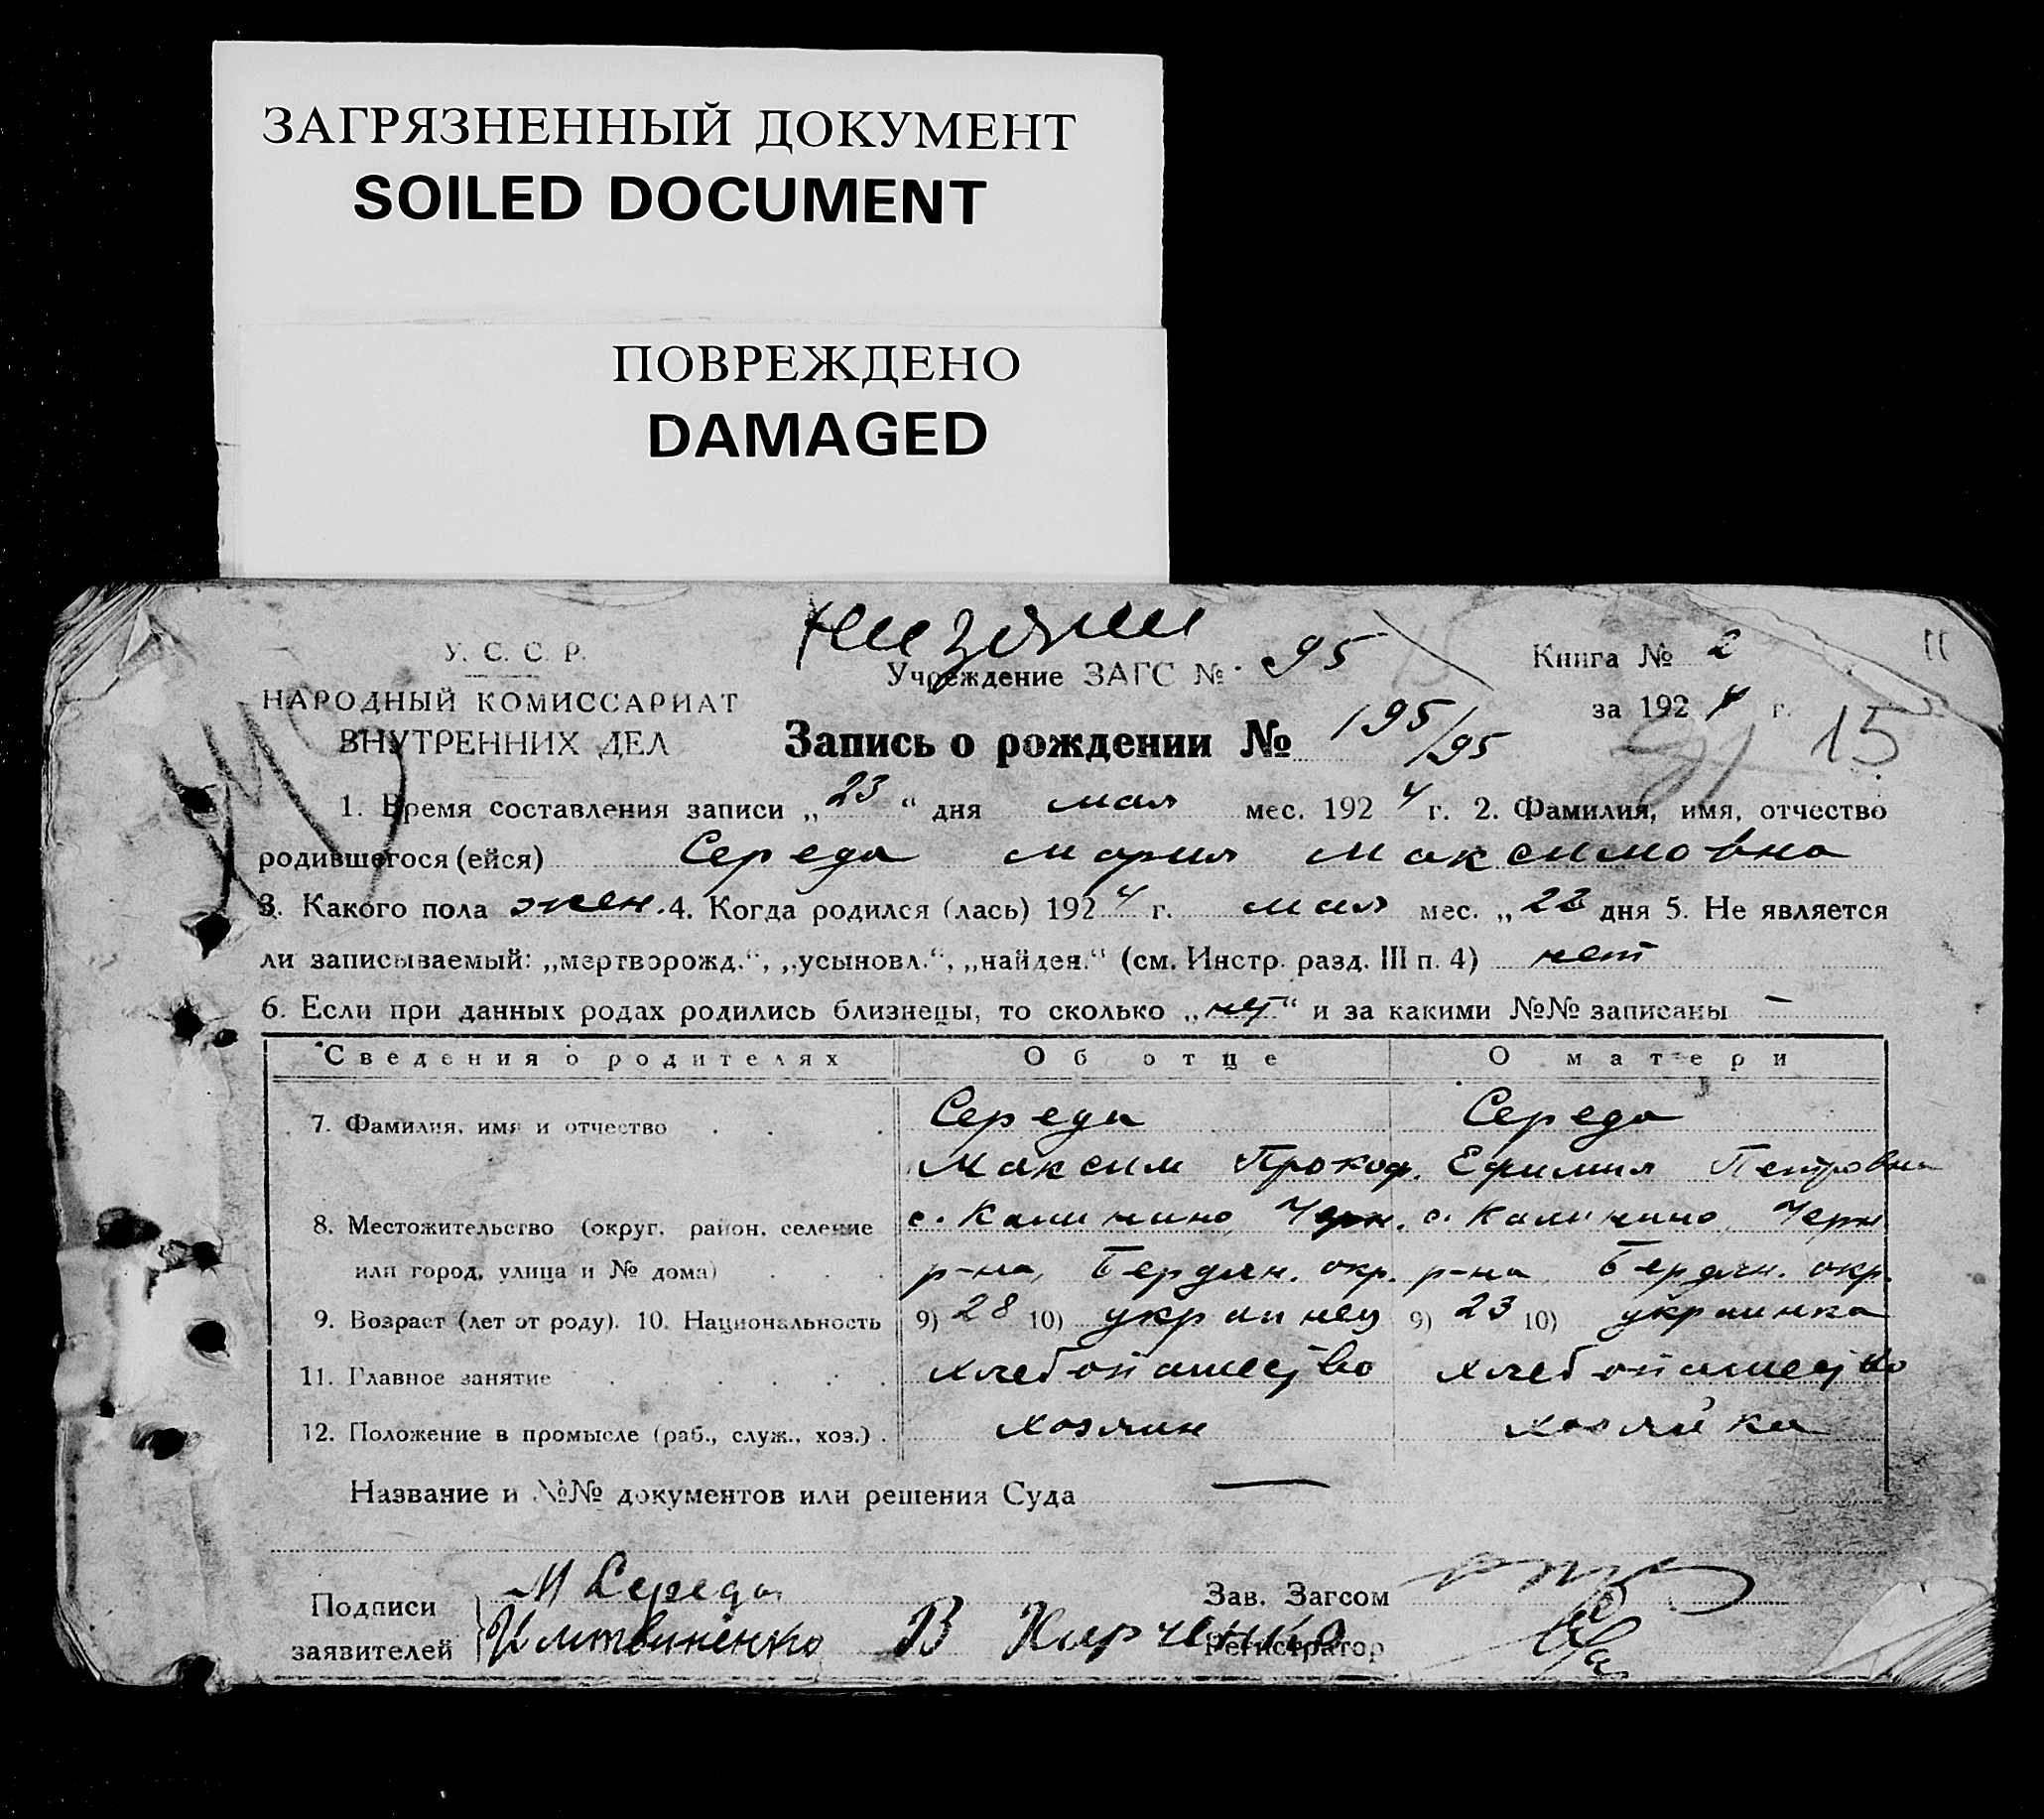 ЗАГРЯЗНЕННЫЙ ДОКУМЕНТ
SOILED DOCUMENT
ПОВРЕЖДЕНО
DAMAGED
У. С. С. Р.
НАРОДНЫЙ КОМИССАРИАТ
ВНУТРЕННИХ ДЕЛ
Учреждение ЗАГС № 95
Книга № 2
за 1924 г.
15
11
Запись о рождении № 195/95
1. Время составления записи „23“ дня мая мес. 1924 г. 2. Фамилия, имя, отчество
родившегося (ейся) Середа Мария Максимовна
3. Какого пола жен. 4. Когда родился (лась) 1924 г. мая мес. „ дня 5. Не является
ли записываемый: „мертворожд.“, „усыновл.“, „найден.“ (см. Инстр. разд. III п. 4) нет
6. Если при данных родах родились близнецы, то сколько „нет“ и за какими №№ записаны —
Сведения о родителях Об отце О матери
7. Фамилия, имя и отчество Середа Середа
Максим Прокоф. Ефимия Петровна
8. Местожительство (округ, район, селение с. Калинино, Черн. с. Калинино, Черн.
или город, улица и № дома) р-на, Бердян. окр. р-на, Бердян. окр.
9. Возраст (лет от роду). 10. Национальность 9) 28 10) украинец 9) 23 10) украинка
11. Главное занятие хлебопашество хлебопашество
12. Положение в промысле (раб., служ., хоз.) хозяин хозяйка
Название и №№ документов или решения Суда —
Подписи М Середа Зав. Загсом
заявителей В Регистратор